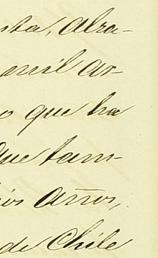 sta, atra-
mil ar-
o que ha
que tam-
ios años,
de Chile